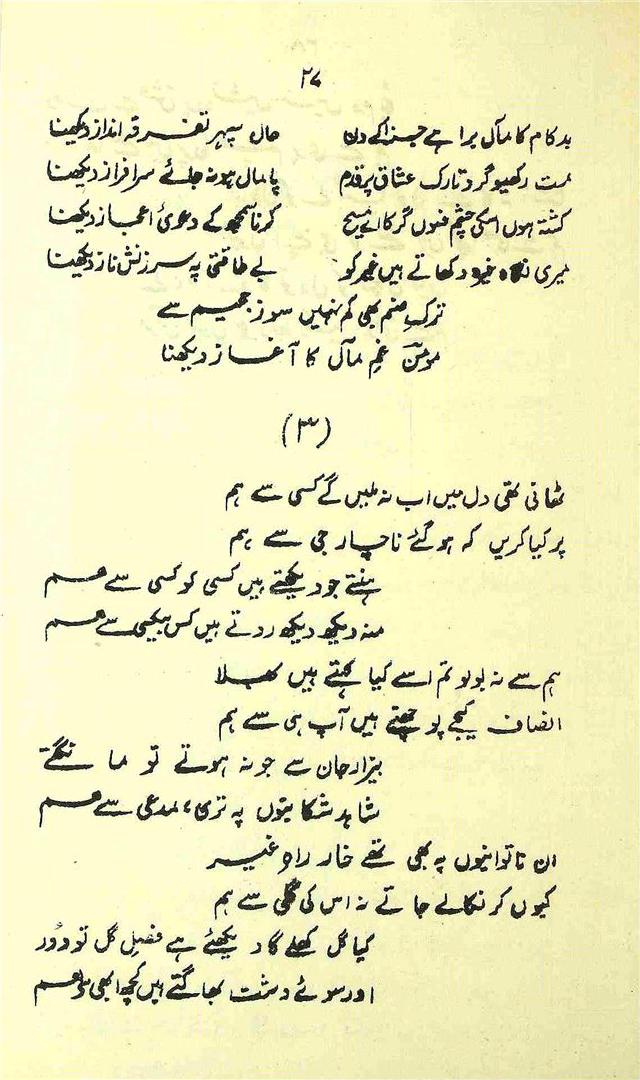 ۲۷
بد کام کا مآل برا ہے جزا کے دن حال سپہر تفرقہ انداز دیکھنا
مت رکھیو گرد تارک عشاق پر قدم پامال ہو نہ جائے سرافراز دیکھنا
کشتہ ہوں اسکی چشم فسوں گر کا اے مسیح کرنا سمجھ کے دعویٔ اعجاز دیکھنا
میری نگاہ خیرہ دکھاتے ہیں غیر کو بے طاقتی پہ سرزنش ناز دیکھنا
ترکِ صنم بھی کم نہیں سوز جحیم سے
مومنؔ غمِ مآل کا آغاز دیکھنا
(۳)
ٹھانی تھی دل میں اب نہ ملیں گے کسی سے ہم
پر کیا کریں کہ ہو گئے ناچار جی سے ہم
ہنستے جو دیکھتے ہیں کسی کو کسی سے ہم
منہ دیکھ دیکھ روتے ہیں کس بیکسی سے ہم
ہم سے نہ بولو تم اسے کیا کہتے ہیں بھلا
انصاف کیجے پوچھتے ہیں آپ ہی سے ہم
بیزار جان سے جو نہ ہوتے تو مانگتے
شاہد شکایتوں پہ تری، مدعی سے ہم
ان ناتوانیوں پہ بھی تھے خار راہِ غیر
کیوں کر نکالے جاتے نہ اس کی گلی سے ہم
کیا گل کھلے گا دیکھئے ہے فصلِ گل تو دور
اور سوئے دشت بھاگتے ہیں کچھ ابھی سے ہم